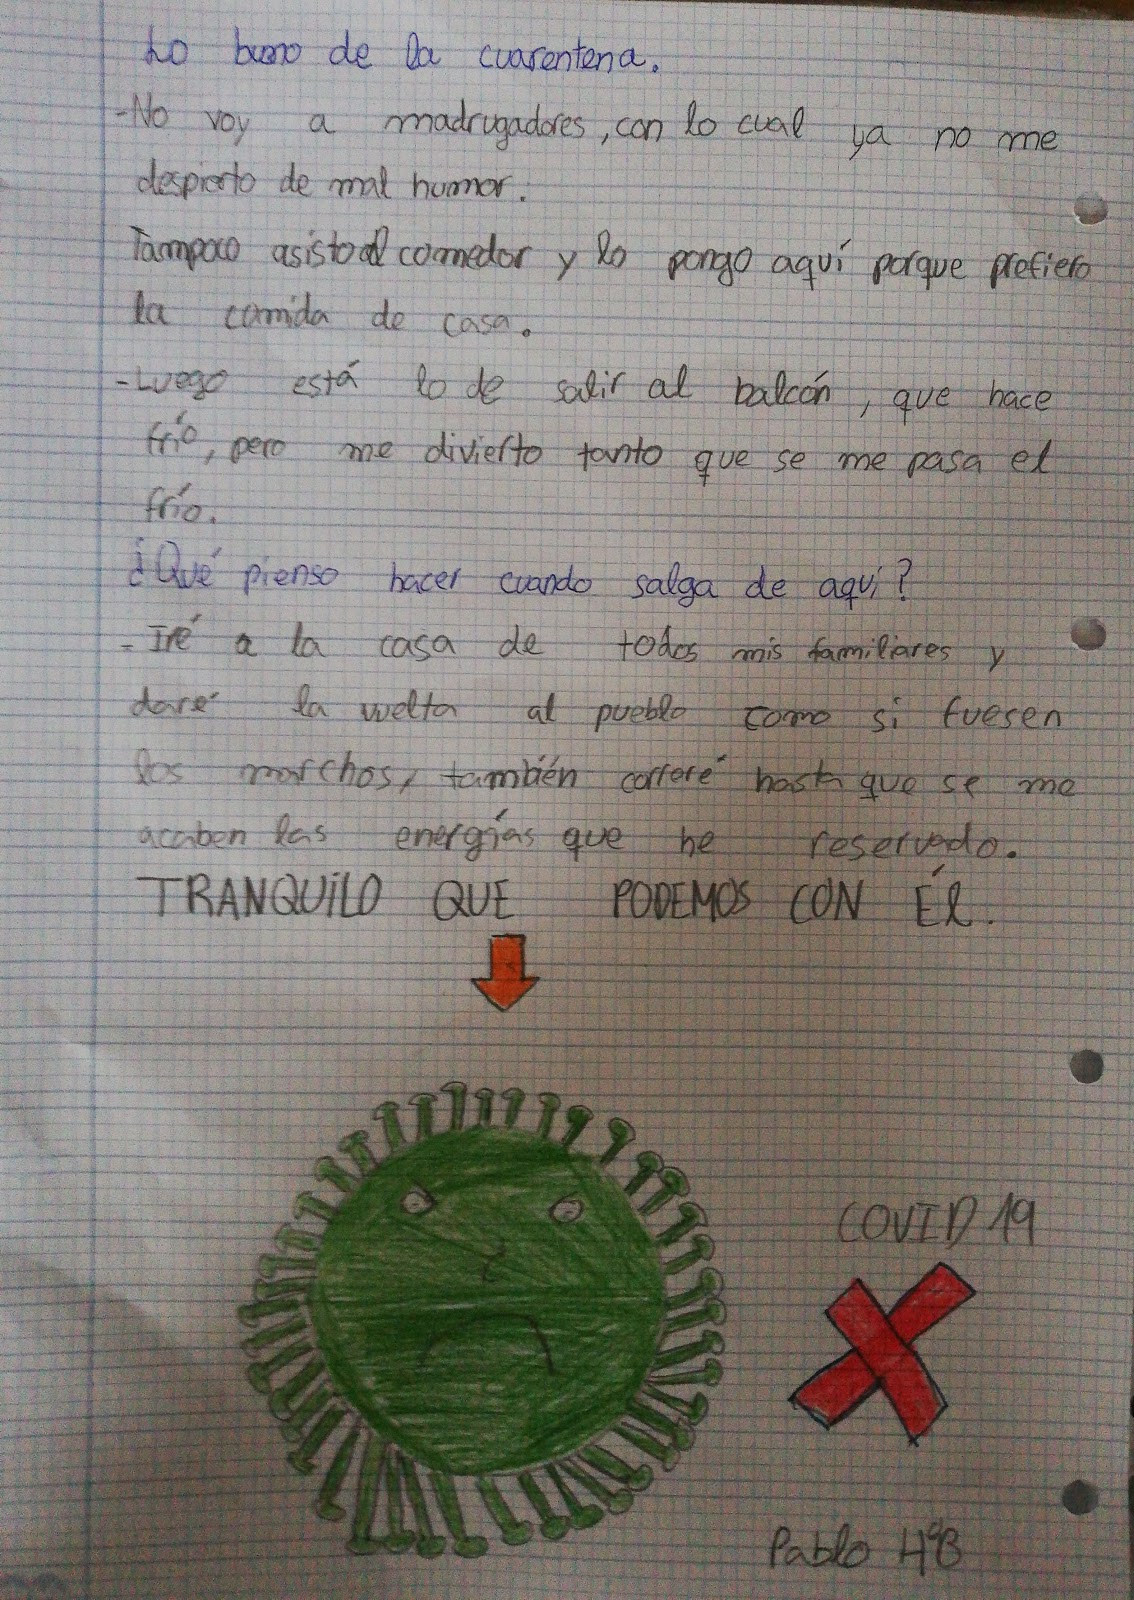 Lo bueno de la cuarentena.
-No voy a madrugadores, con lo cual ya no me
despierto de mal humor.
Tampoco asisto al comedor y lo pongo aquí porque prefiero
la comida de casa.
-Luego está lo de salir al balcón, que hace
frío, pero me divierto tanto que se me pasa el
frío.
¿Qué pienso hacer cuando salga de aquí?
-Iré a la casa de todos mis familiares y
daré la vuelta al pueblo como si fuesen
los marchos, también correré hasta que se me
acaben las energías que he reservado.
TRANQUILO QUE PODEMOS CON ÉL.
COVID 19
Pablo 4ºB